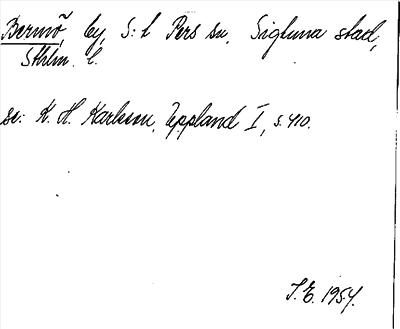 Bermö, by, S:t Pers sn, Sigtuna stad,
Sthlm. l.
se: K. H. Karlsson, Uppland I, s. 410.
S.E. 1954.